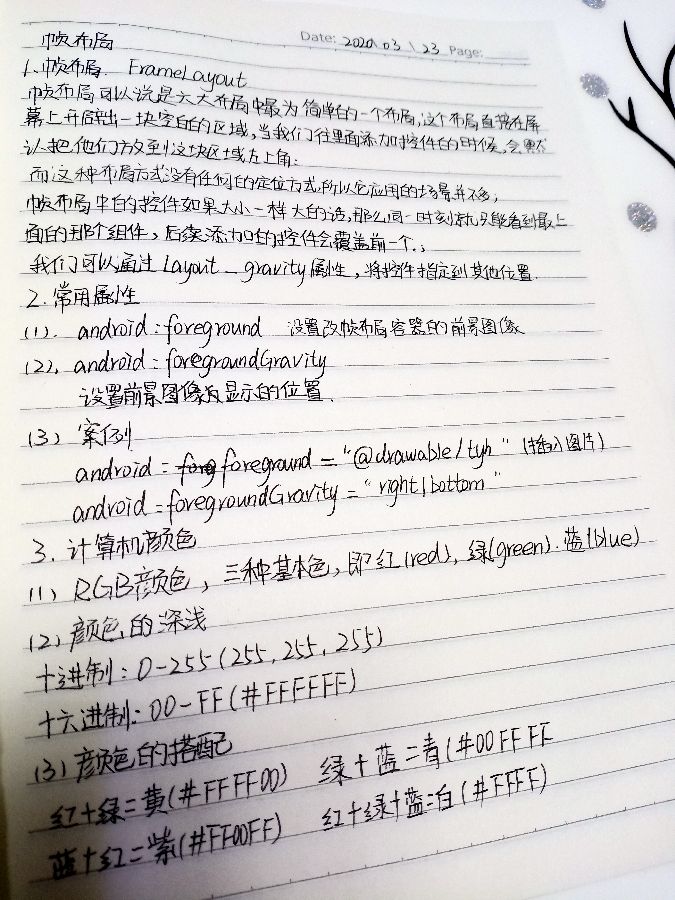 Date: 2020\03\23 Page:
帧布局
1、帧布局 FrameLayout
帧布局可以说是六大布局中最为简单的一个布局,这个布局直接在屏
幕上开辟出一块空白的区域,当我们往里面添加控件的时候,会默
认把他们放到这块区域左上角;
而这种布局方式没有任何的定位方式,所以它应用的场景并不多;
帧布局中的控件如果大小一样大的话,那么同一时刻就只能看到最上
面的那个组件,后续添加的控件会覆盖前一个.;
我们可以通过Layout_gravity属性,将控件指定到其他位置.
2.常用属性
(1). android:foreground 设置改帧布局容器的前景图像
(2). android:foregroundGravity
设置前景图像显示的位置.
(3) 案例
android:foreground="@drawable/tyh" (插入图片)
android:foregroundGravity="right|bottom"
3.计算机颜色
(1) RGB颜色,三种基本色,即红(red),绿(green).蓝(blue)
(2)颜色的深浅
十进制:0-255(255,255,255)
十六进制:00-FF(#FFFFFF)
(3)颜色的搭配
红+绿=黄(#FFFF00) 绿+蓝=青(#00FFFF
蓝+红=紫(#FF00FF) 红+绿+蓝=白(#FFFF)